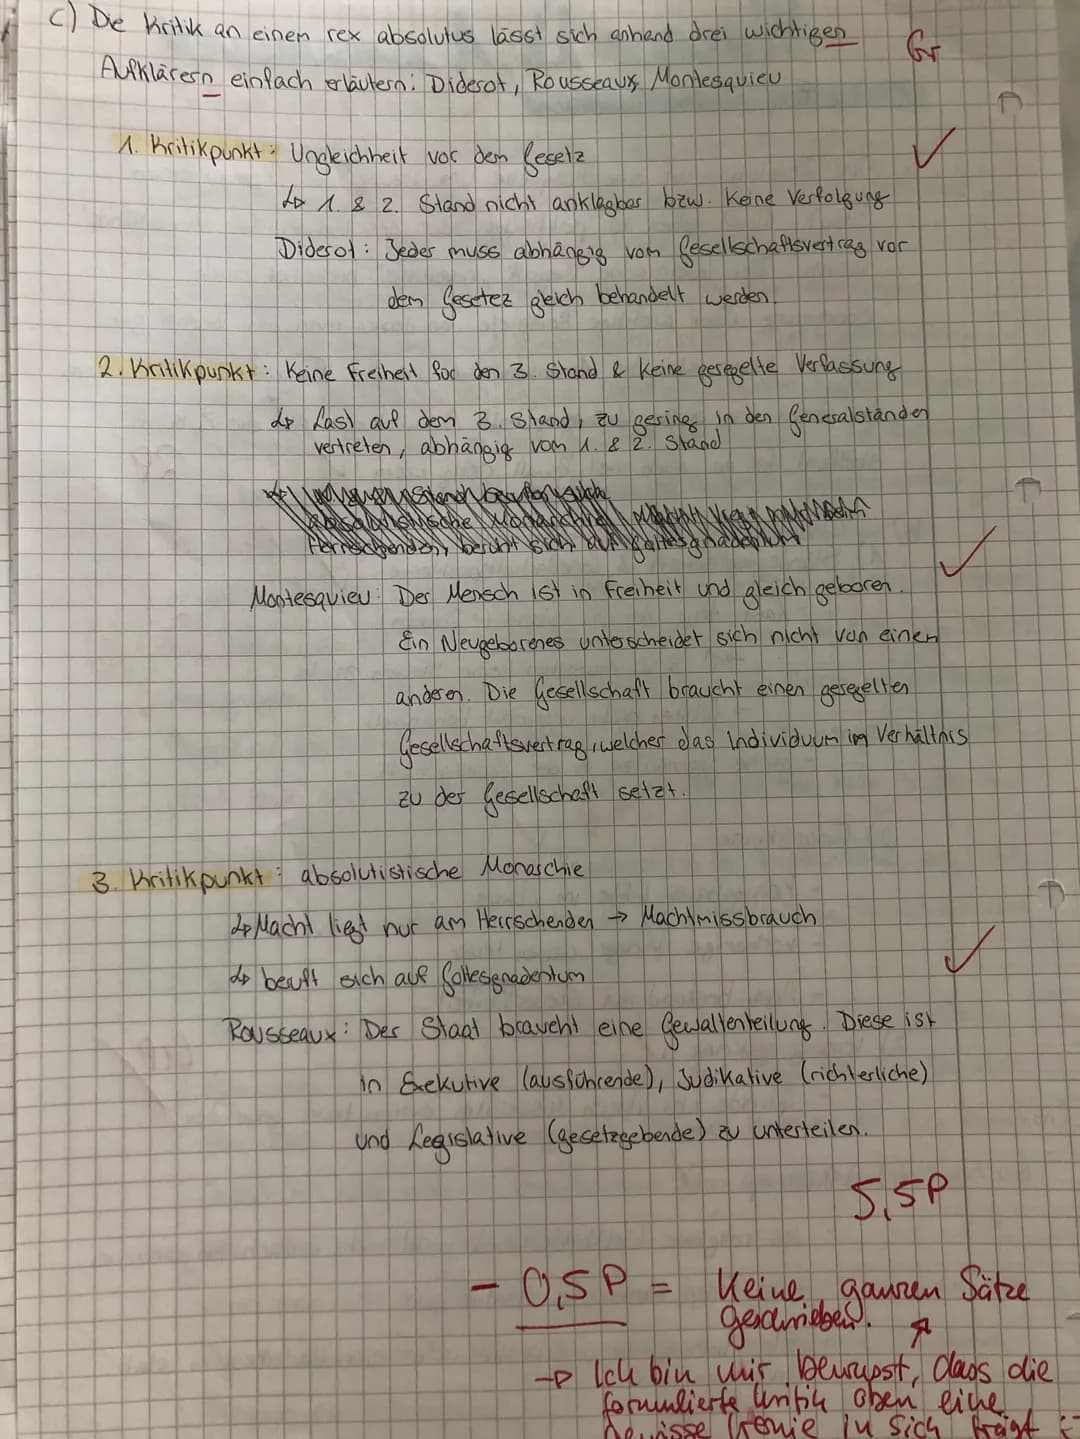 c) Die Kritik an einem rex absolutus lässt sich anhand drei wichtigen
Gr
Aufklärern einfach erläutern: Diderot, Rousseaux, Montesquieu
1. Kritikpunkt: Ungleichheit vor dem Gesetz
↳ 1. & 2. Stand nicht anklagbar bzw. Keine Verfolgung
Diderot: Jeder muss abhängig vom Gesellschaftsvertrag vor
dem Gesetez gleich behandelt werden.
2. Kritikpunkt: Keine Freiheit für den 3. Stand & Keine geregelte Verfassung
↳ Last auf dem 3. Stand, zu gering in den Generalständen
vertreten, abhängig vom 1. & 2. Stand
absolutistische Monarchie
Herrschenden, beruht sich auf Gottesgnadentum
Montesquieu: Der Mensch ist in Freiheit und gleich geboren.
Ein Neugeborenes unterscheidet sich nicht von einem
anderen. Die Gesellschaft braucht einen geregelten
Gesellschaftsvertrag, welcher das Individuum im Verhältnis
zu der Gesellschaft setzt.
3. Kritikpunkt: absolutistische Monarchie
↳ Macht liegt nur am Herrschenden → Machtmissbrauch
↳ beruft sich auf Gottesgnadentum
Rousseaux: Der Staat braucht eine Gewaltenteilung. Diese ist
in Exekutive (ausführende), Judikative (richterliche)
und Legislative (gesetzgebende) zu unterteilen.
5,5P
- 0,5P = Keine ganzen Sätze
geschrieben.
→ Ich bin mir bewusst, dass die
formulierte Kritik oben eine
gewisse Ironie in sich trägt